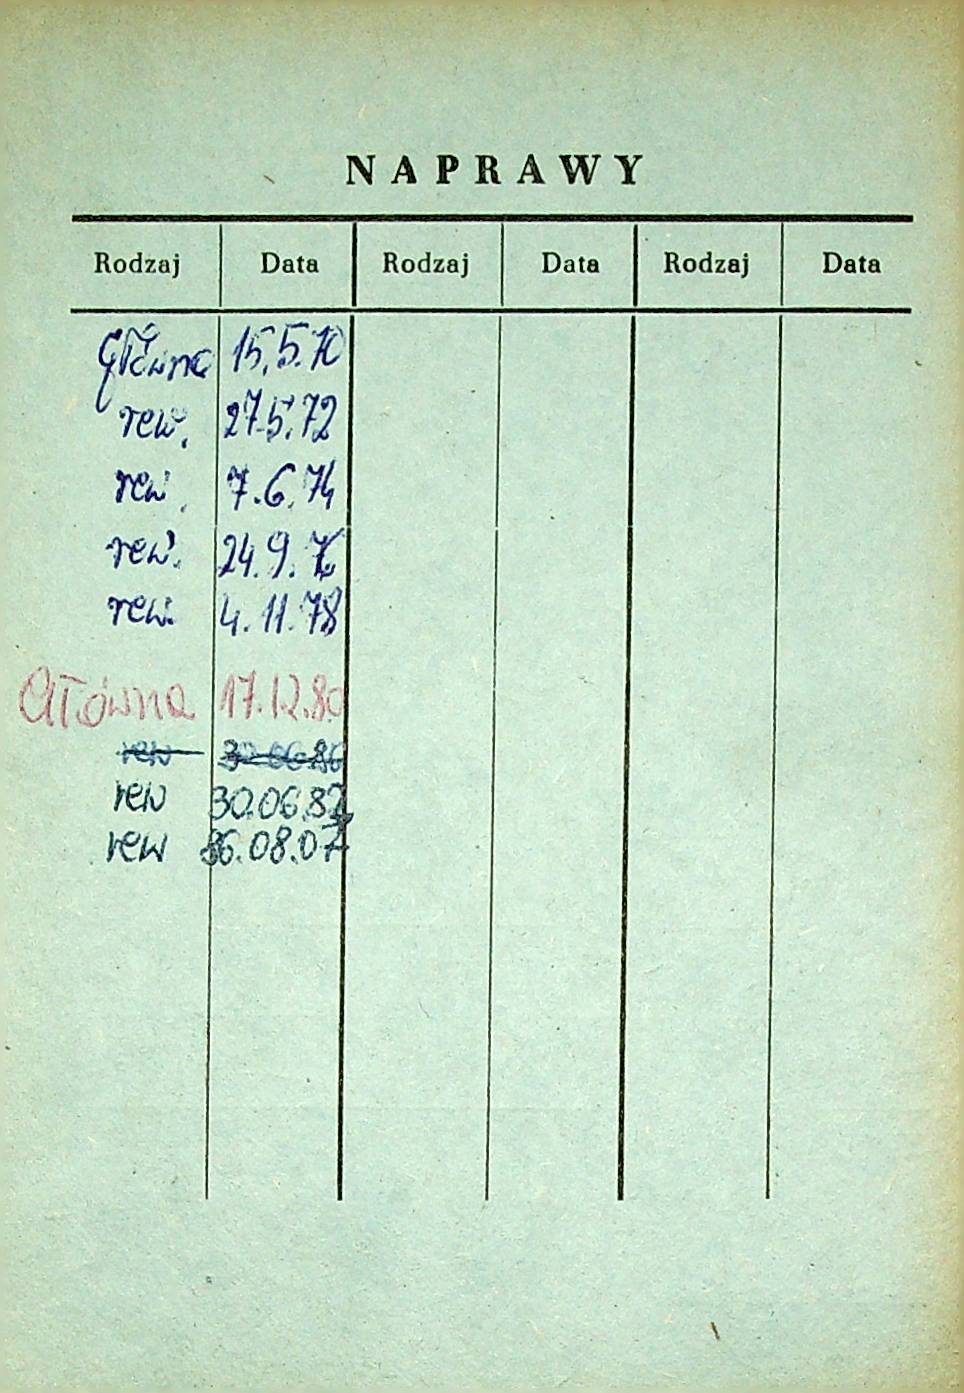 NAPRAWY
Rodzaj Data Rodzaj Data Rodzaj Data
Główna 15.5.70
rew. 27.5.72
rew. 7.6.74
rew. 24.9.76
rew. 4.11.78
Główna 17.12.80
rew 30.06.86
rew 30.06.82
rew